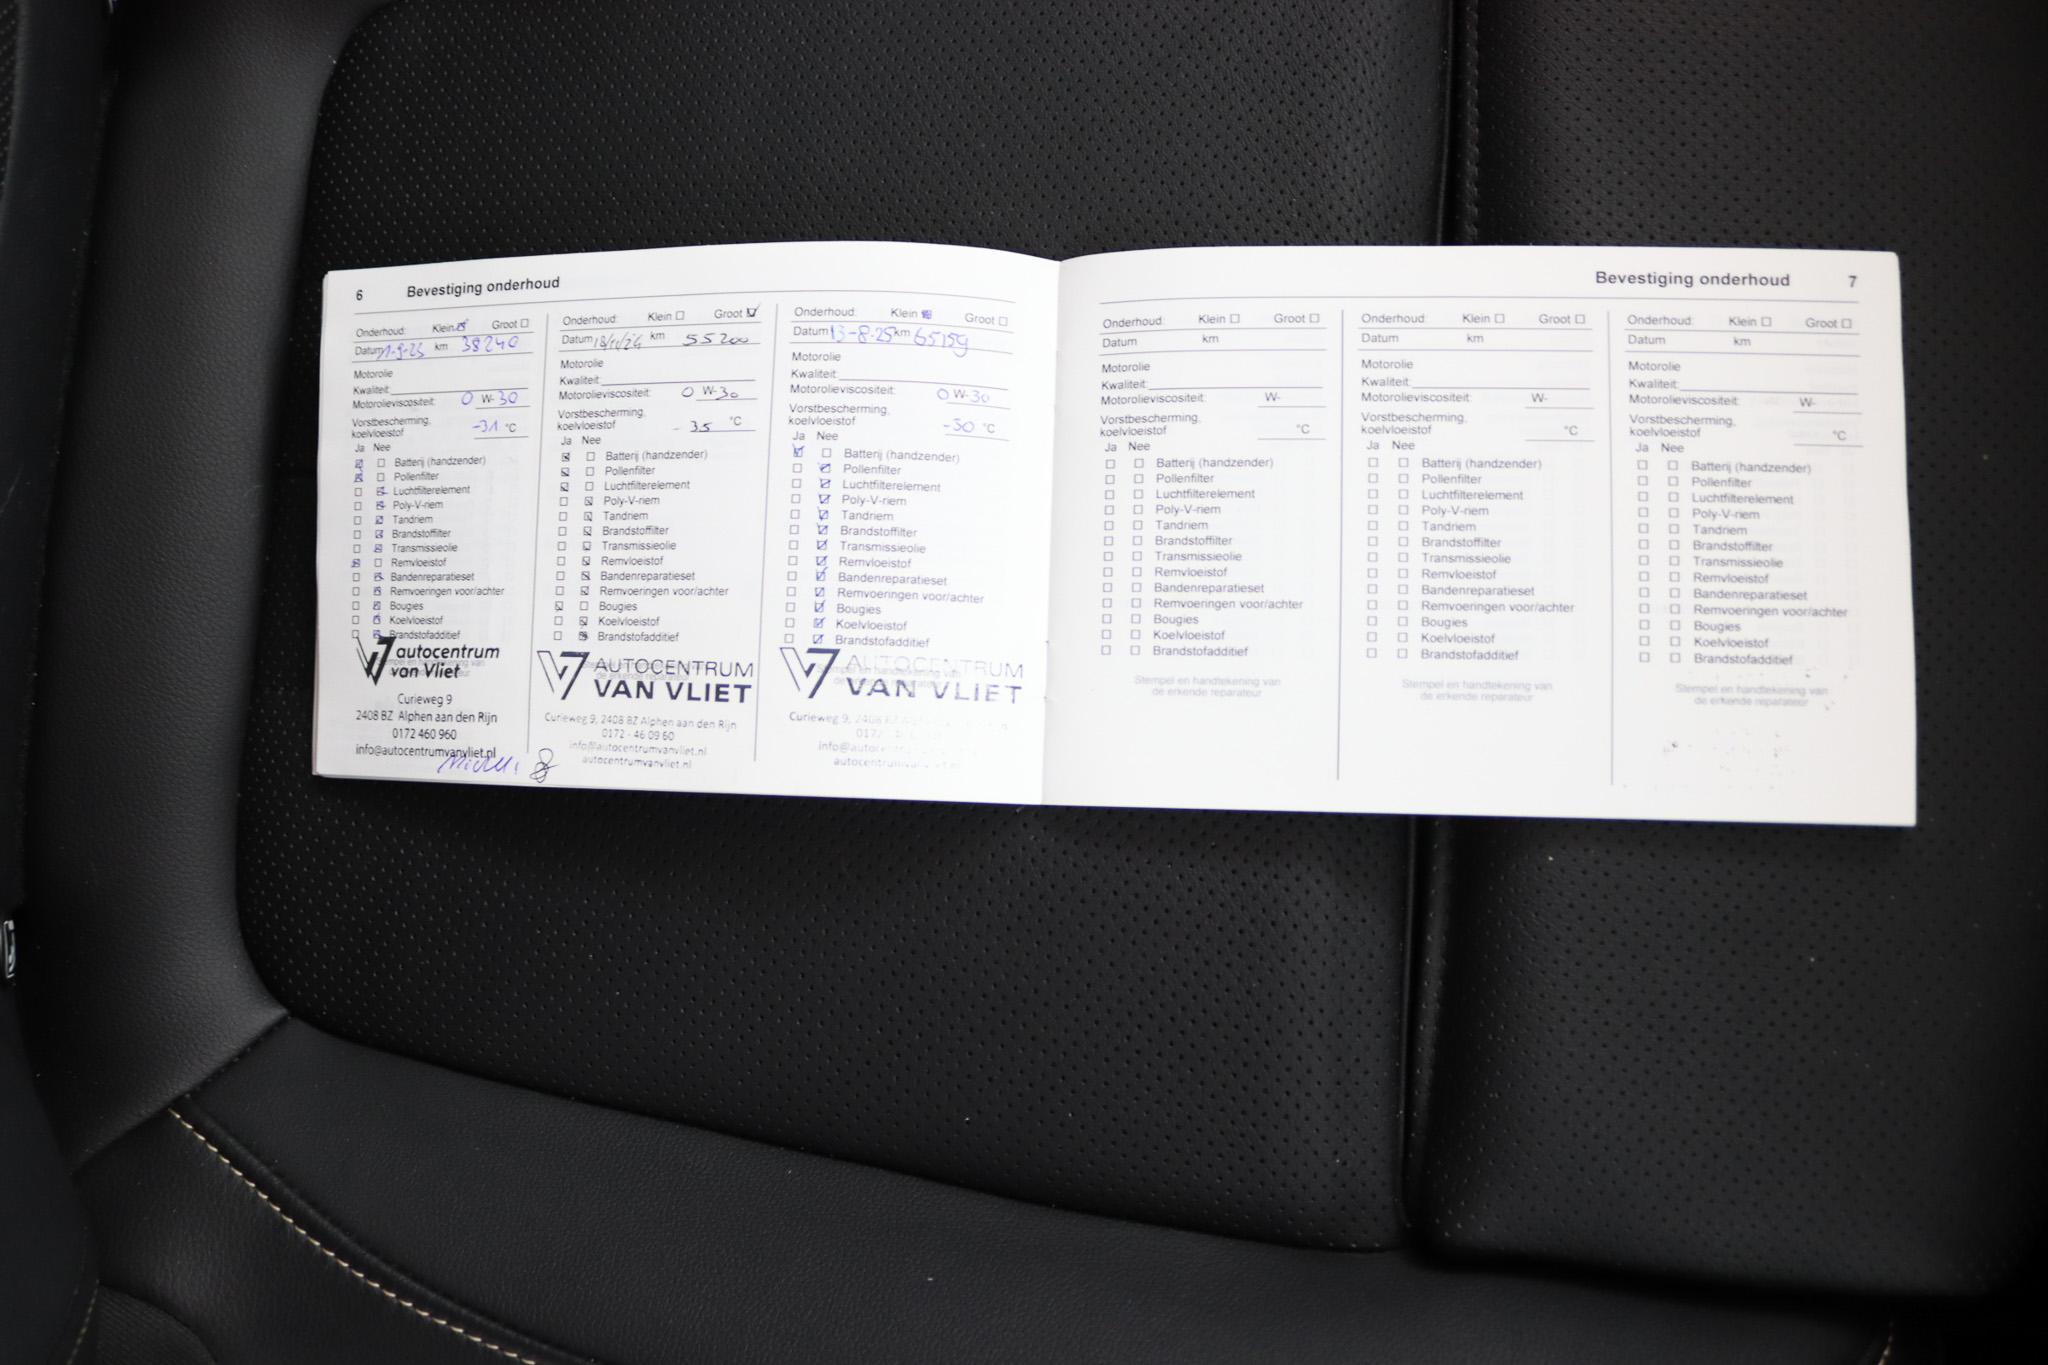 6 Bevestiging onderhoud
Onderhoud: Klein Groot
Datum 1-9-23 km 38240
Motorolie
Kwaliteit:
Motorolieviscositeit: 0 W-30
Vorstbescherming,
koelvloeistof -31 °C
Ja Nee
Batterij (handzender)
Pollenfilter
Luchtfilterelement
Poly-V-riem
Tandriem
Brandstoffilter
Transmissieolie
Remvloeistof
Bandenreparatieset
Remvoeringen voor/achter
Bougies
Koelvloeistof
Brandstofadditief
Stempel en handtekening van
de erkende reparateur
autocentrum
van Vliet
Curieweg 9
2408 BZ Alphen aan den Rijn
0172 460 960
info@autocentrumvanvliet.nl
Onderhoud: Klein Groot
Datum 18/11/24 km 55200
Motorolie
Kwaliteit:
Motorolieviscositeit: 0 W-30
Vorstbescherming,
koelvloeistof - 35 °C
Ja Nee
Batterij (handzender)
Pollenfilter
Luchtfilterelement
Poly-V-riem
Tandriem
Brandstoffilter
Transmissieolie
Remvloeistof
Bandenreparatieset
Remvoeringen voor/achter
Bougies
Koelvloeistof
Brandstofadditief
Stempel en handtekening van
de erkende reparateur
AUTOCENTRUM
VAN VLIET
Curieweg 9, 2408 BZ Alphen aan den Rijn
0172 - 46 09 60
info@autocentrumvanvliet.nl
autocentrumvanvliet.nl
Onderhoud: Klein Groot
Datum 13-8-25 km 65159
Motorolie
Kwaliteit:
Motorolieviscositeit: 0 W-30
Vorstbescherming,
koelvloeistof -30 °C
Ja Nee
Batterij (handzender)
Pollenfilter
Luchtfilterelement
Poly-V-riem
Tandriem
Brandstoffilter
Transmissieolie
Remvloeistof
Bandenreparatieset
Remvoeringen voor/achter
Bougies
Koelvloeistof
Brandstofadditief
Stempel en handtekening van
de erkende reparateur
AUTOCENTRUM
VAN VLIET
Curieweg 9, 2408 BZ
0172
info@autocentrum
Bevestiging onderhoud 7
Onderhoud: Klein Groot
Datum km
Motorolie
Kwaliteit:
Motorolieviscositeit: W-
Vorstbescherming,
koelvloeistof °C
Ja Nee
Batterij (handzender)
Pollenfilter
Luchtfilterelement
Poly-V-riem
Tandriem
Brandstoffilter
Transmissieolie
Remvloeistof
Bandenreparatieset
Remvoeringen voor/achter
Bougies
Koelvloeistof
Brandstofadditief
Stempel en handtekening van
de erkende reparateur
Onderhoud: Klein Groot
Datum km
Motorolie
Kwaliteit:
Motorolieviscositeit: W-
Vorstbescherming,
koelvloeistof °C
Ja Nee
Batterij (handzender)
Pollenfilter
Luchtfilterelement
Poly-V-riem
Tandriem
Brandstoffilter
Transmissieolie
Remvloeistof
Bandenreparatieset
Remvoeringen voor/achter
Bougies
Koelvloeistof
Brandstofadditief
Stempel en handtekening van
de erkende reparateur
Onderhoud: Klein Groot
Datum km
Motorolie
Kwaliteit:
Motorolieviscositeit: W-
Vorstbescherming,
koelvloeistof °C
Ja Nee
Batterij (handzender)
Pollenfilter
Luchtfilterelement
Poly-V-riem
Tandriem
Brandstoffilter
Transmissieolie
Remvloeistof
Bandenreparatieset
Remvoeringen voor/achter
Bougies
Koelvloeistof
Brandstofadditief
Stempel en handtekening van
de erkende reparateur